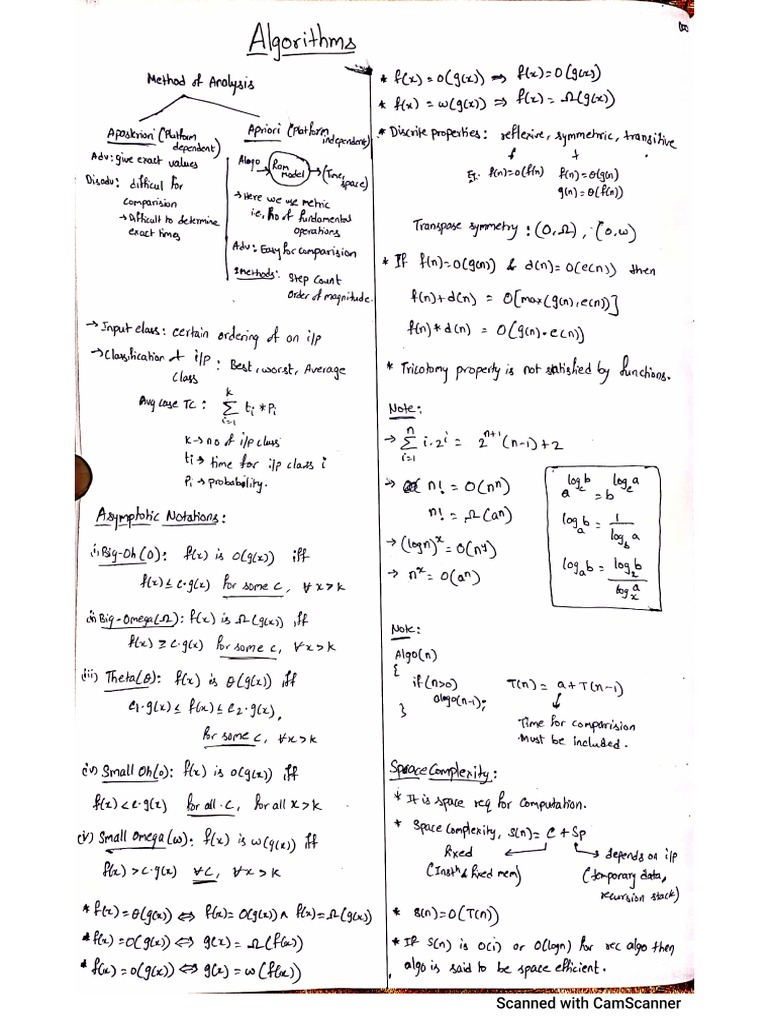 Algorithms
Method of Analysis
Aposteriori (Platform dependent)
Adv: give exact values
Disadv: difficul for
comparision
→ Difficult to determine
exact times
Apriori (Platform independent)
Algo → Ram model → (Time, space)
→ Here we use metric
ie, no of fundamental
operations
Adv: Easy for comparision
2methods: Step Count
Order of magnitude.
→ Input class: certain ordering of an i/p
→ Classification of i/p class : Best, worst, Average
Avg case TC: k Σ i=1 ti * Pi
k → no of i/p class
ti → time for i/p class i
Pi → probability.
Asymptotic Notations:
(i) Big-Oh (O): f(x) is O(g(x)) iff
f(x) ≤ c·g(x) for some c, ∀ x > k
(ii) Big-Omega (Ω): f(x) is Ω(g(x)) iff
f(x) ≥ c·g(x) for some c, ∀x > k
(iii) Theta (θ): f(x) is θ(g(x)) iff
c1·g(x) ≤ f(x) ≤ c2·g(x),
for some c, ∀x > k
(iv) Small Oh (o): f(x) is o(g(x)) iff
f(x) < c·g(x) for all c, for all x > k
(v) Small Omega (ω): f(x) is ω(g(x)) iff
f(x) > c·g(x) ∀c, ∀x > k
* f(x) = θ(g(x)) ⇔ f(x) = O(g(x)) ∧ f(x) = Ω(g(x))
* f(x) = O(g(x)) ⇔ g(x) = Ω(f(x))
* f(x) = o(g(x)) ⇔ g(x) = ω(f(x))
* f(x) = o(g(x)) ⇒ f(x) = O(g(x))
* f(x) = ω(g(x)) ⇒ f(x) = Ω(g(x))
* Discrite properties: reflexive, symmetric, transitive
Ex: f(n) = O(f(n)) f(n) = θ(g(n))
g(n) = θ(f(n))
Transpose symmetry : (O, Ω), (o, ω)
* If f(n) = O(g(n)) & d(n) = O(e(n)) then
f(n) + d(n) = O[max(g(n), e(n))]
f(n) * d(n) = O(g(n) · e(n))
* Tricotomy property is not satisfied by functions.
Note:
→ n Σ i=1 i·2^i = 2^(n+1) (n-1) + 2
→ n! = O(n^n)
n! = Ω(a^n)
→ (log n)^x = O(n^y)
→ n^x = O(a^n)
a^(log_c b) = b^(log_c a)
log_a b = 1 / log_b a
log_a b = log_x b / log_x a
Note:
Algo(n)
{
if (n>0)
algo(n-1);
}
T(n) = a + T(n-1)
Time for comparision
Must be included.
Space Complexity:
* It is space req for computation.
* Space Complexity, S(n) = C + Sp
fixed
(Instn & fixed mem)
depends on i/p
(temporary data,
recursion stack)
* S(n) = O(T(n))
* If S(n) is O(1) or O(logn) for rec algo then
algo is said to be space efficient.
Scanned with CamScanner